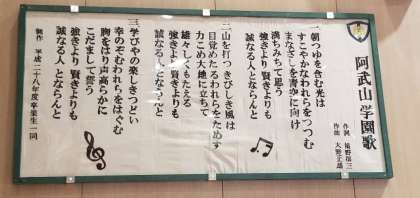 阿武山学園歌
作詞 
作曲 大野正雄
一、朝つゆを含む光は
すこやかなわれらをつつむ
まなざしを青空に向け
満ちみちて思う
強きより 賢きよりも
誠なる人 とならんと
二、山を打つ きびしき風は
目覚めたるわれらをためす
力こめ大地に立ちて
雄々しくもたえる
強きより 賢きよりも
誠なる人 とならんと
三、学びやの楽しきつどい
幸のぞむわれらをはぐむ
胸をはり声高らかに
こだまして誓う
強きより 賢きよりも
誠なる人 とならんと
制作 平成二十八年度卒業生一同